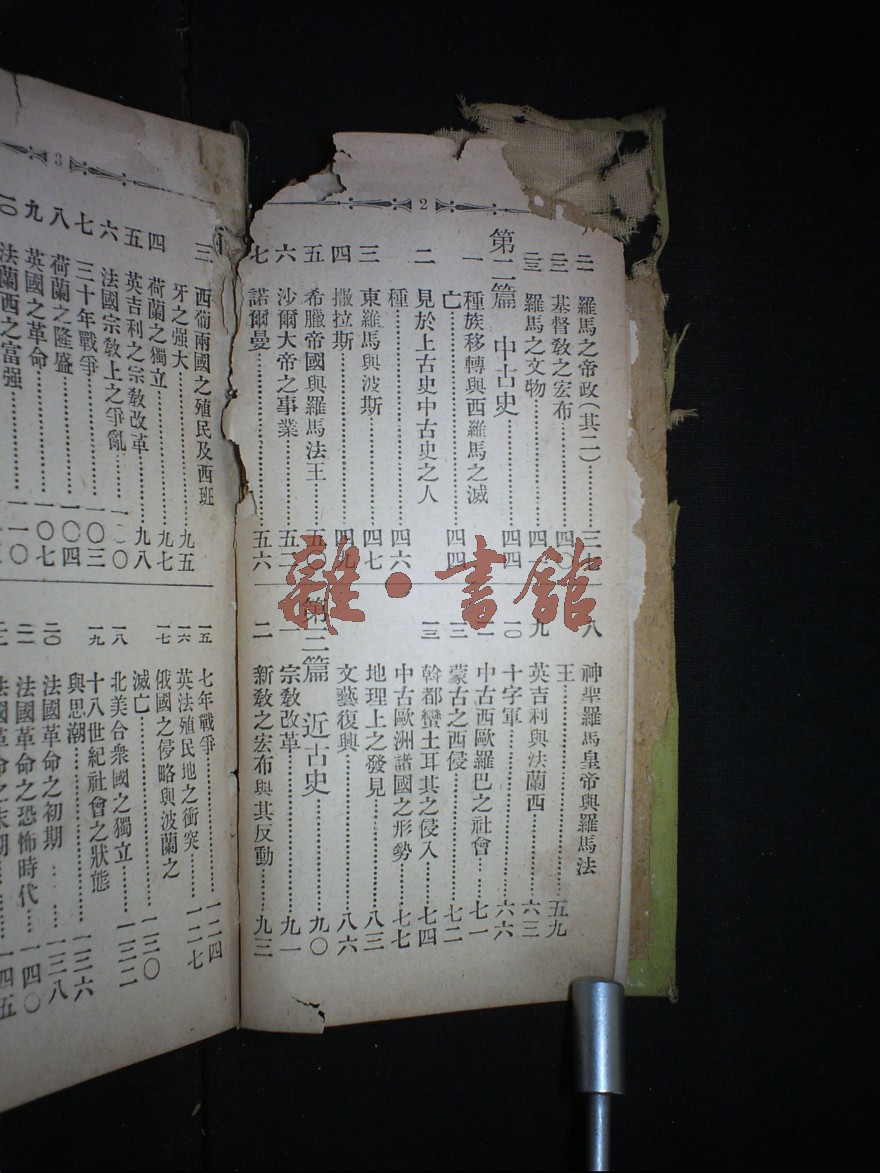 2
羅馬之帝政(其二)……三七
基督教之宏布……四〇
羅馬之文物……四一
第二篇 中古史……四四
一 種族移轉與西羅馬之滅
亡……四四
二 見於上古史中古史之人
種……四六
三 東羅馬與波斯……四七
四 撒拉斯……四九
五 希臘帝國與羅馬法王……五〇
六 沙爾大帝之事業……五二
七 諾爾曼……五六
八 神聖羅馬皇帝與羅馬法
王……五九
九 英吉利與法蘭西……六三
一〇 十字軍……六六
一一 中古西歐羅巴之社會……七一
一二 蒙古之西侵……七二
一三 斡都蠻土耳其之侵入……七四
中古歐洲諸國之形勢……七七
地理上之發見……八三
文藝復興……八六
第三篇 近古史……九〇
一 宗教改革……九一
二 新教之宏布與其反動……九三
3
三 西葡兩國之殖民及西班
牙之强大……九五
四 荷蘭之獨立……九七
五 英吉利之宗教改革……九八
六 法國宗教上之爭亂……一〇〇
七 三十年戰爭……一〇三
八 荷蘭之隆盛……一〇四
九 英國之革命……一〇七
一〇 法蘭西之富强……一一〇
一五 七年戰爭……一二四
一六 英法殖民地之衝突……一二七
一七 俄國之侵略與波蘭之
滅亡……一三〇
一八 北美合衆國之獨立……一三二
一九 十八世紀社會之狀態
與思潮……一三六
二〇 法國革命之初期……一三八
二一 法國革命之恐怖時代……一四〇
二二 法國革命之末期……一四五
雜·書館